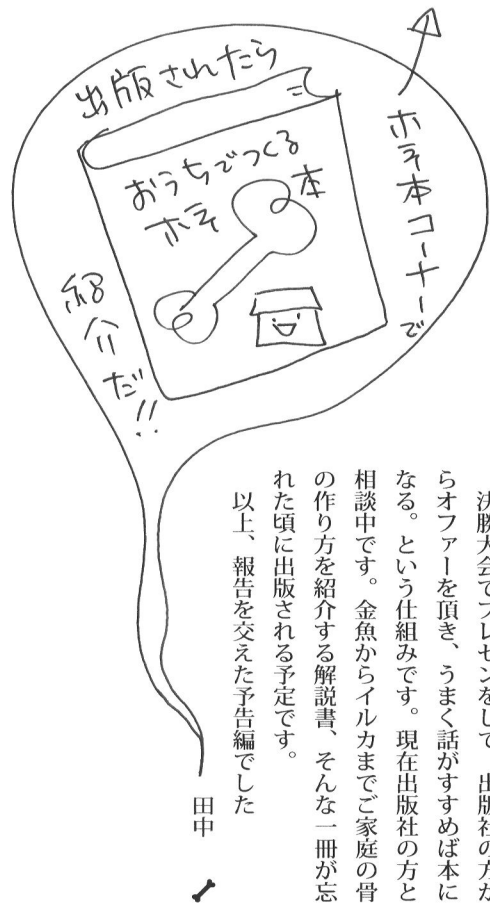 出版されたら
おうちでつくる
ホネ本
ホネ本コーナーで
紹介だ!!
決勝大会でプレゼンをして、出版社の方か
らオファーを頂き、うまく話がすすめば本に
なる。という仕組みです。現在出版社の方と
相談中です。金魚からイルカまでご家庭の骨
の作り方を紹介する解説書、そんな一冊が忘
れた頃に出版される予定です。
以上、報告を交えた予告編でした
田中